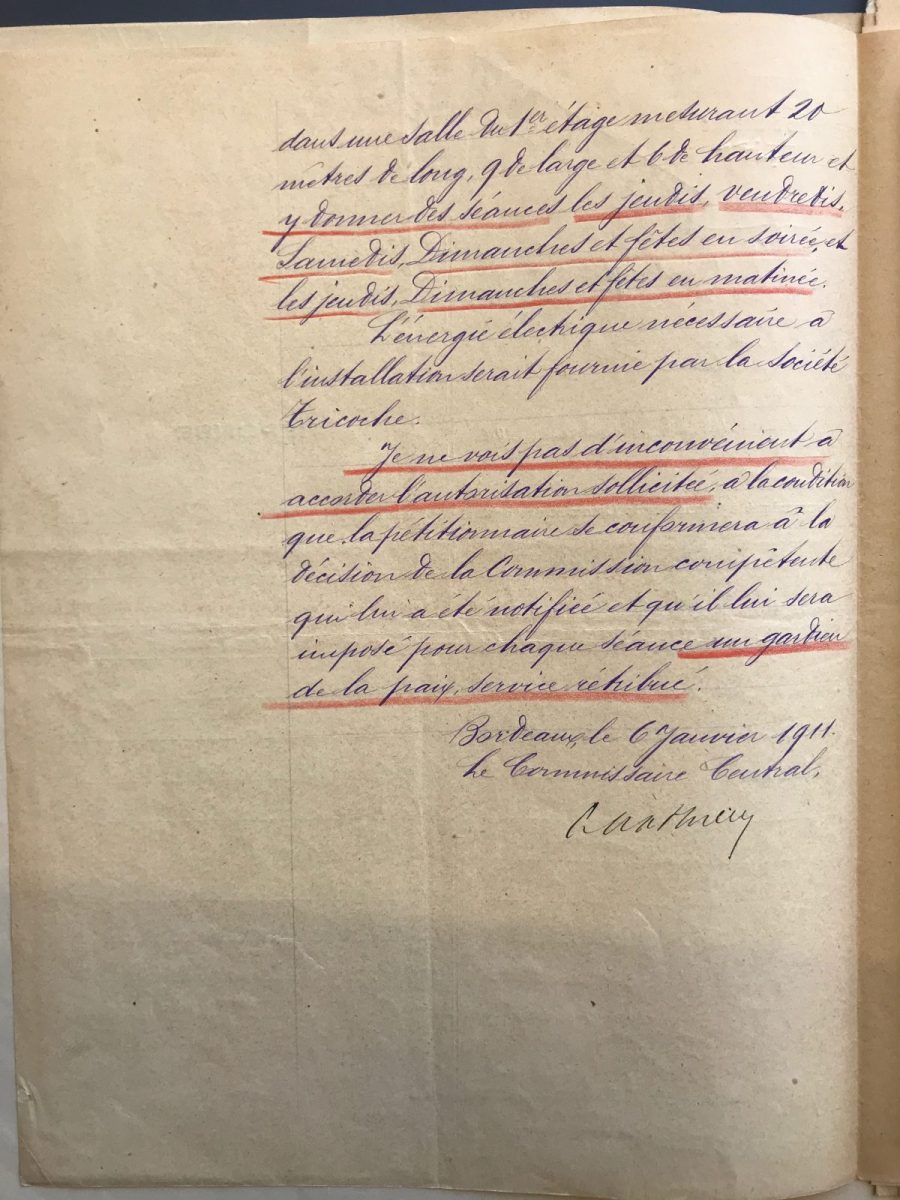 dans une salle du 1er étage mesurant 20
mètres de long, 9 de large et 6 de hauteur et
y donner des séances les jeudis, vendredis,
Samedis, Dimanches et fêtes en soirée, et
les jeudis, Dimanches et fêtes en matinée.
L'énergie électrique nécessaire à
l'installation serait fournie par la Société
Tricoche.
Je ne vois pas d'inconvénient à
accorder l'autorisation sollicitée, à la condition
que la pétitionnaire se conformera à la
décision de la Commission compétente
qui lui a été notifiée et qu'il lui sera
imposé pour chaque séance un gardien
de la paix, service rétribué.
Bordeaux, le 6 Janvier 1911.
Le Commissaire Central,